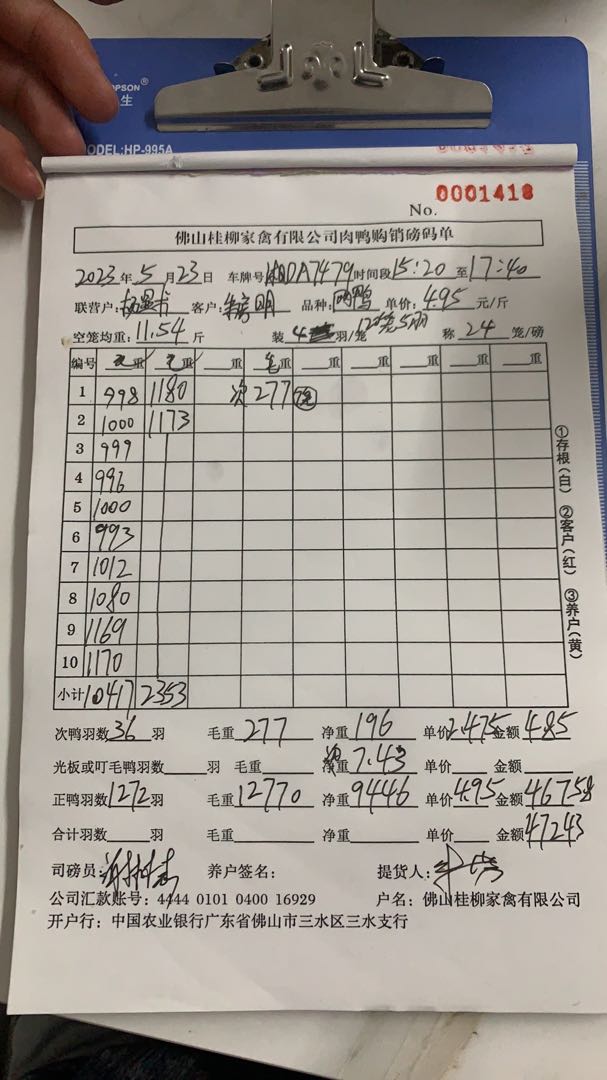 OPSON®
生
MODEL:HP-995A
No. 0001418
佛山桂柳家禽有限公司肉鸭购销磅码单
2023年5月23日 车牌号湘DA7479时间段15:20至17:40
联营户: 客户: 明 品种:肉鸭 单价:4.95元/斤
空笼均重:11.54斤 装 4 羽/笼 12笼5羽 称 24 笼/磅
编号 毛重 毛重 重 毛重 重 重 重 重
1 998 1180 次 277
2 1000 1173
3 999
4 996
5 1000
6 993
7 1012
8 1080
9 1169
10 1170
小计 10417 2353
次鸭羽数36羽 毛重277 净重196 单价2.475金额485
光板或叮毛鸭羽数 羽 毛重 净重7.43 单价 金额
正鸭羽数1272羽 毛重12770 净重9446 单价4.95金额46758
合计羽数 羽 毛重 净重 单价 金额47243
司磅员: 养户签名: 提货人:
公司汇款账号:4444 0101 0400 16929 户名:佛山桂柳家禽有限公司
开户行:中国农业银行广东省佛山市三水区三水支行
①存根(白) ②客户(红) ③养户(黄)